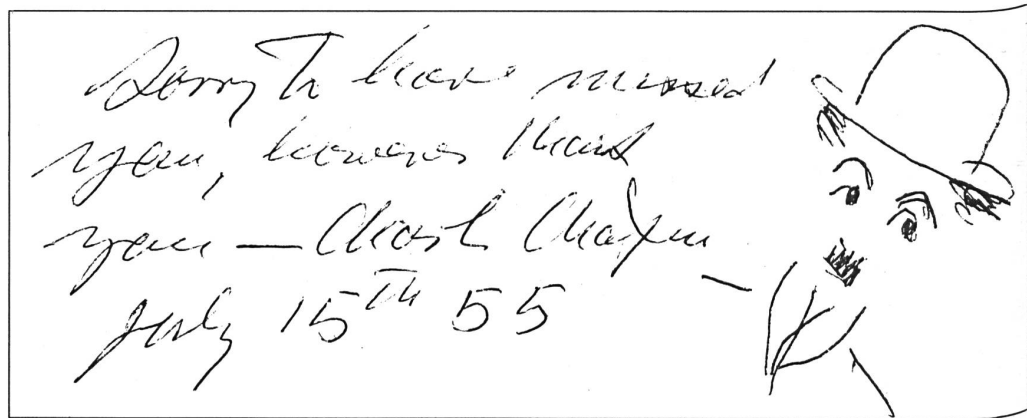 Sorry to have missed
you, however thank
you — Charlie Chaplin
July 15th 55